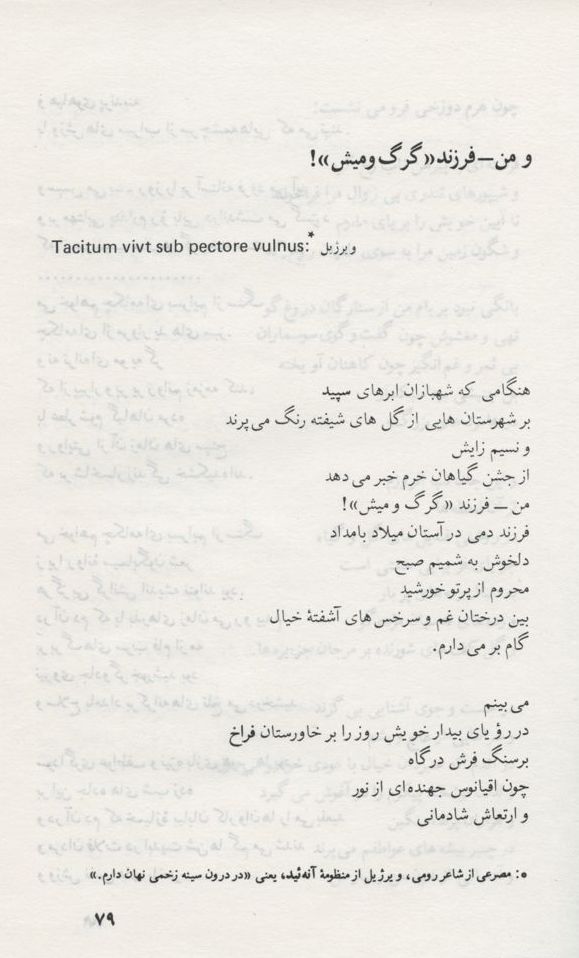 و من — فرزند «گرگ و میش»!
Tacitum vivt sub pectore vulnus:* ویرژیل
هنگامی که شهبازان ابرهای سپید
بر شهرستان هایی از گل های شیفته رنگ می‌پرند
و نسیم زایش
از جشن گیاهان خرم خبر می دهد
من — فرزند «گرگ و میش»!
فرزند دمی در آستان میلاد بامداد
دلخوش به شمیم صبح
محروم از پرتو خورشید
بین درختان غم و سرخس های آشفتهٔ خیال
گام بر می دارم.
می بینم
در رؤیای بیدار خویش روز را بر خاورستان فراخ
بر سنگ فرش درگاه
چون اقیانوس جهنده ای از نور
و ارتعاش شادمانی
*: مصرعی از شاعر رومی، ویرژیل از منظومهٔ آنه‌ئید، یعنی «در درون سینه زخمی نهان دارم.»
۷۹